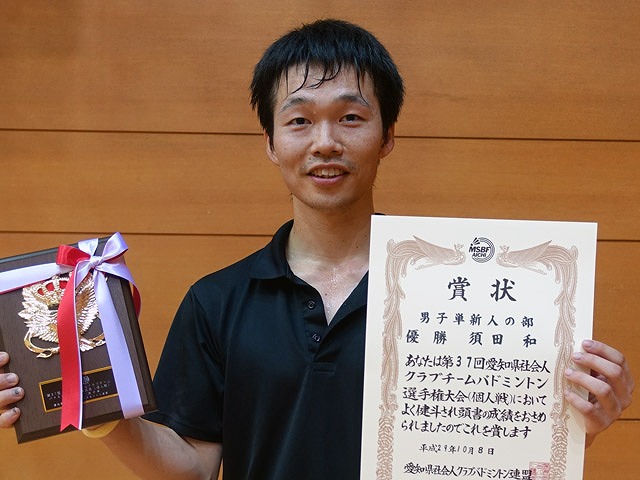 MSBF
AICHI
賞状
男子単新人の部
優勝 須田和
あなたは第37回愛知県社会人
クラブチームバドミントン
選手権大会(個人戦)において
よく健斗され頭書の成績をおさめ
られましたのでこれを賞します
平成29年10月8日
愛知県社会人クラブバドミントン連盟